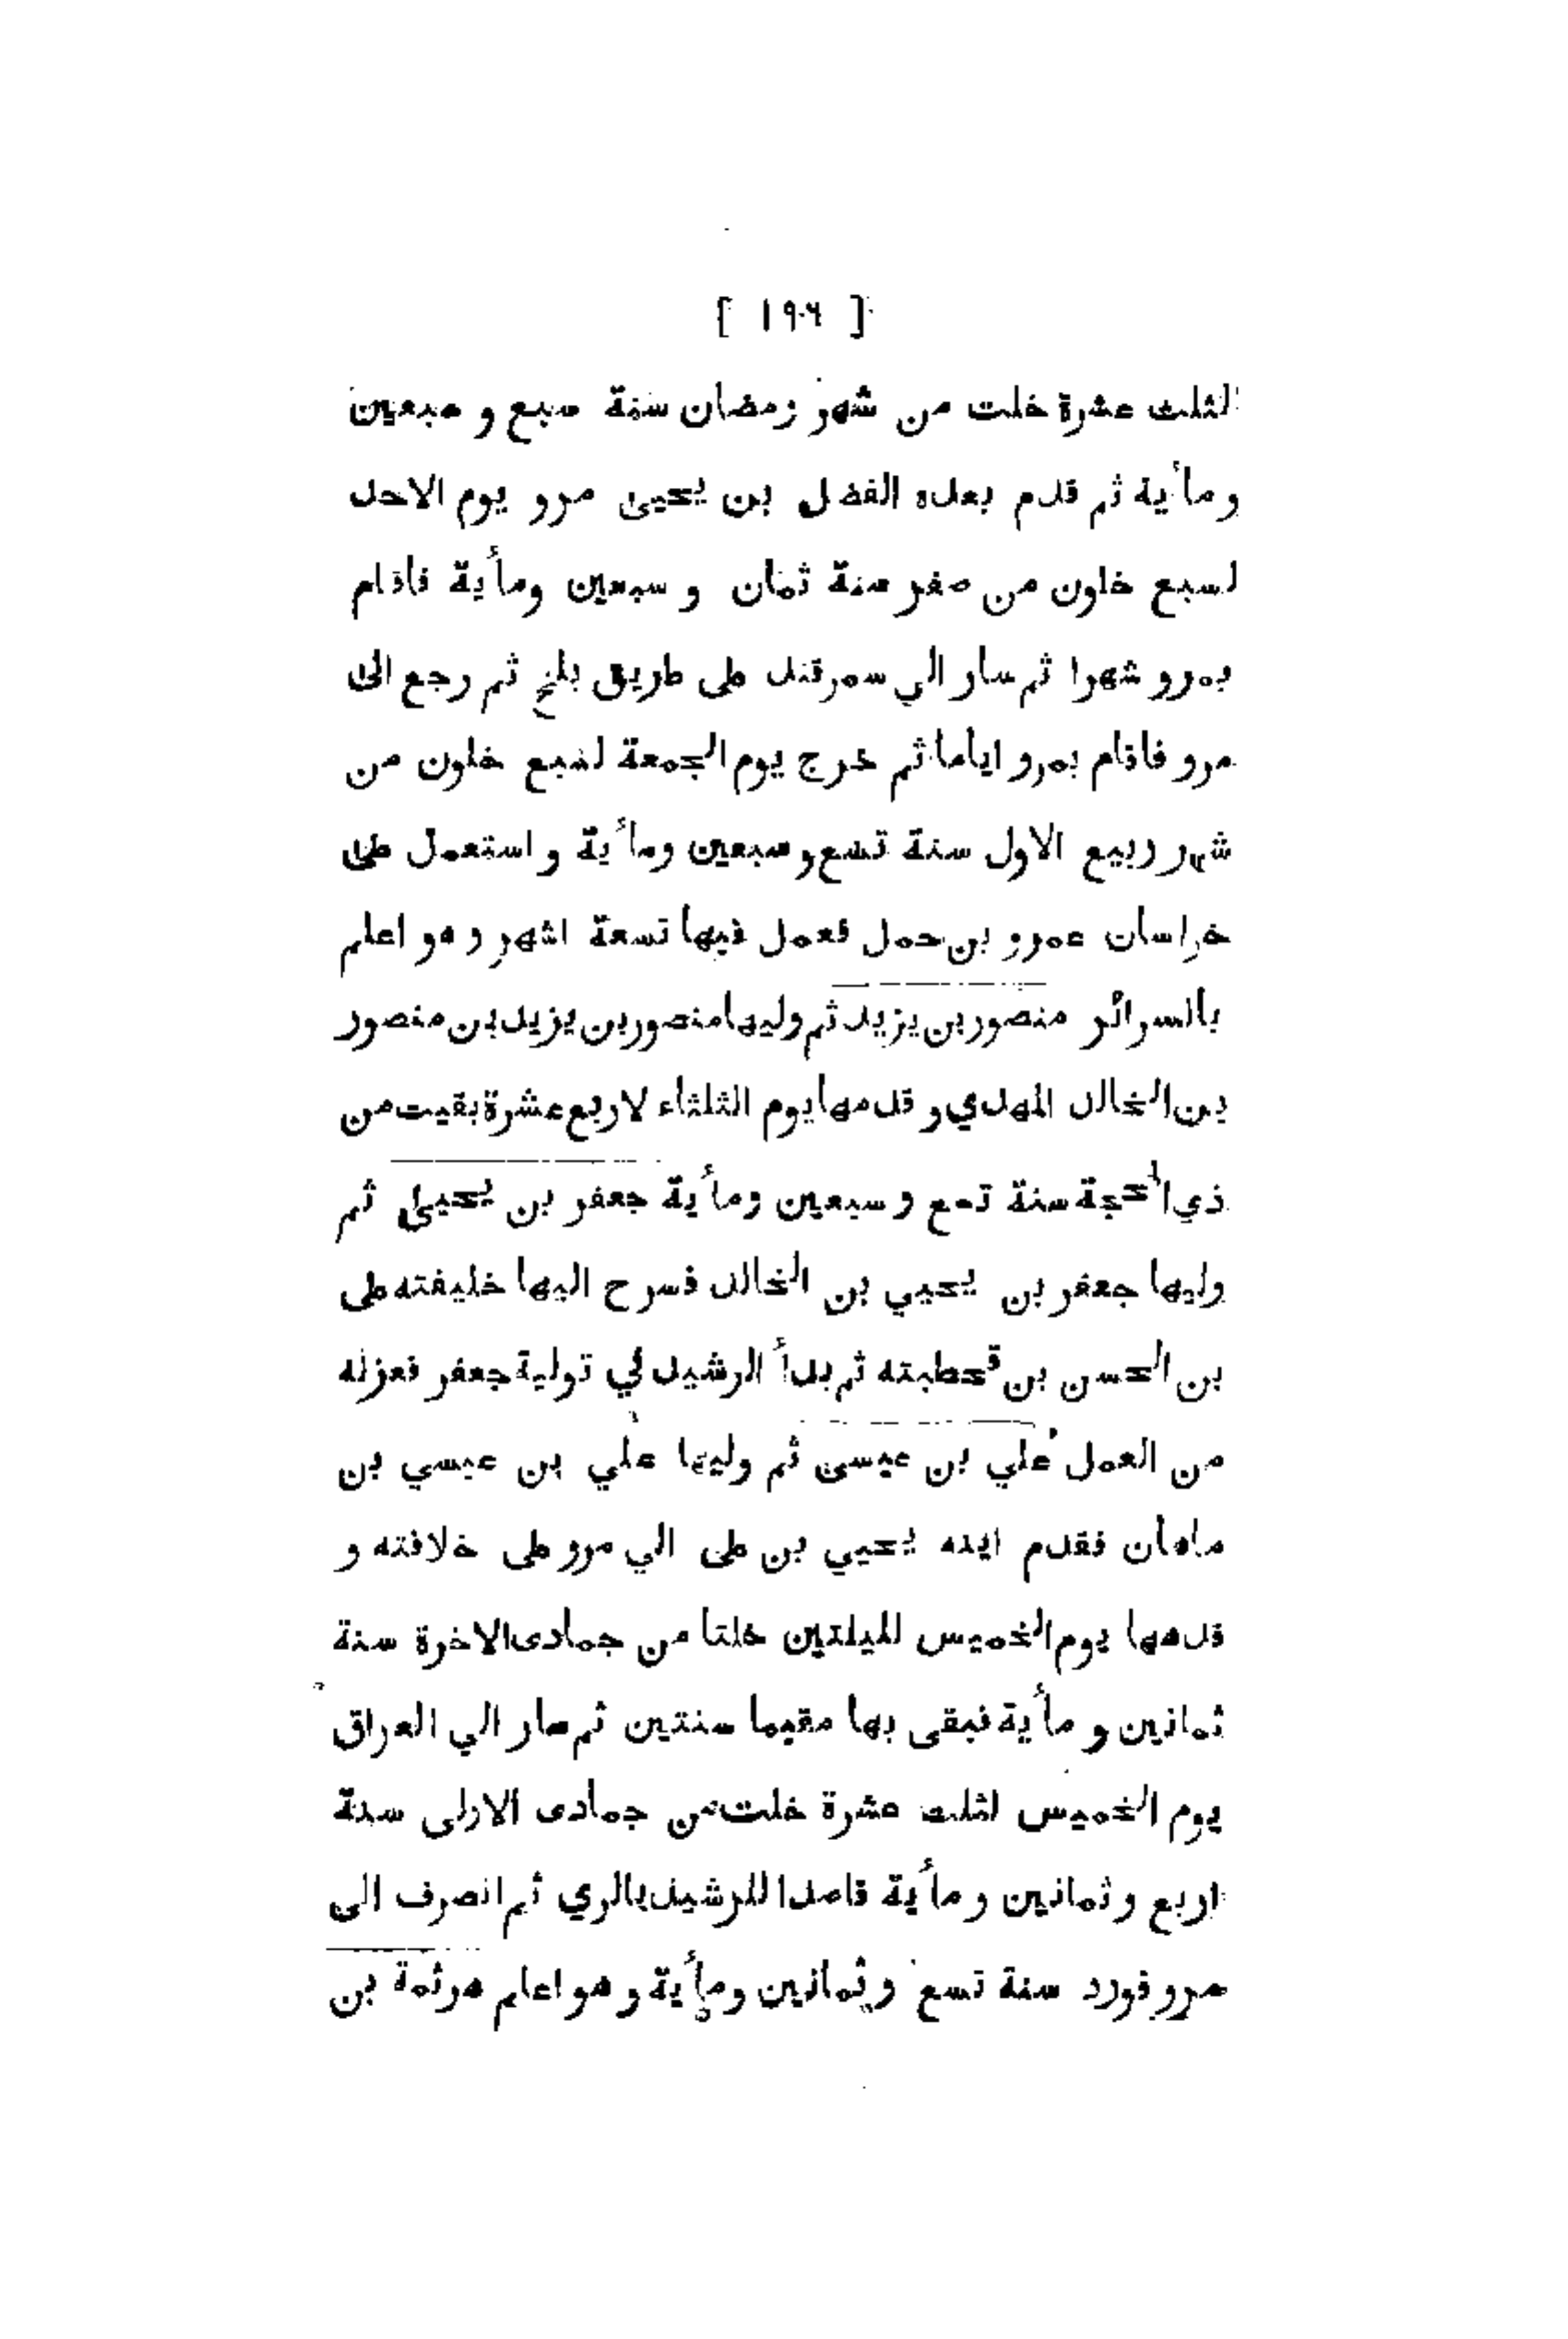 [ ١٩٦ ]
لثلث عشرة خلت من شهر رمضان سنة سبع و سبعين
و مأية ثم قدم بعده الفضل بن يحيى مرو يوم الاحد
لسبع خلون من صفر سنة ثمان و سبعين ومأية فاقام
بمرو شهرا ثم سار الي سمرقند على طريق بلخ ثم رجع الى
مرو فاقام بمرو اياما ثم خرج يوم الجمعة لسبع خلون من
شهر ربيع الاول سنة تسع و سبعين ومأية و استعمل على
خراسان عمرو بن حمل فعمل فيها تسعة اشهر و هو اعلم
بالسرائر منصور بن يزيد ثم وليها منصور بن يزيد بن منصور
بن الخالد المهدي و قدمها يوم الثلثاء لاربع عشرة بقيت من
ذي الحجة سنة تسع و سبعين ومأية جعفر بن يحيى ثم
وليها جعفر بن يحيي بن الخالد فسرح اليها خليفته على
بن الحسن بن قحطبته ثم بدأ الرشيد في تولية جعفر فعزله
من العمل علي بن عيسى ثم وليها علي بن عيسي بن
ماهان فقدم ابنه يحيي بن على الي مرو على خلافته و
قدمها يوم الخميس لليلتين خلتا من جمادى الاخرة سنة
ثمانين و مأية فبقى بها مقيما سنتين ثم سار الي العراق
يوم الخميس لثلث عشرة خلت من جمادى الاولى سنة
اربع و ثمانين و مأية قاصدا للرشيد بالري ثم انصرف الى
مرو فورد سنة تسع و ثمانين ومأية و هو اعلم هرثمة بن